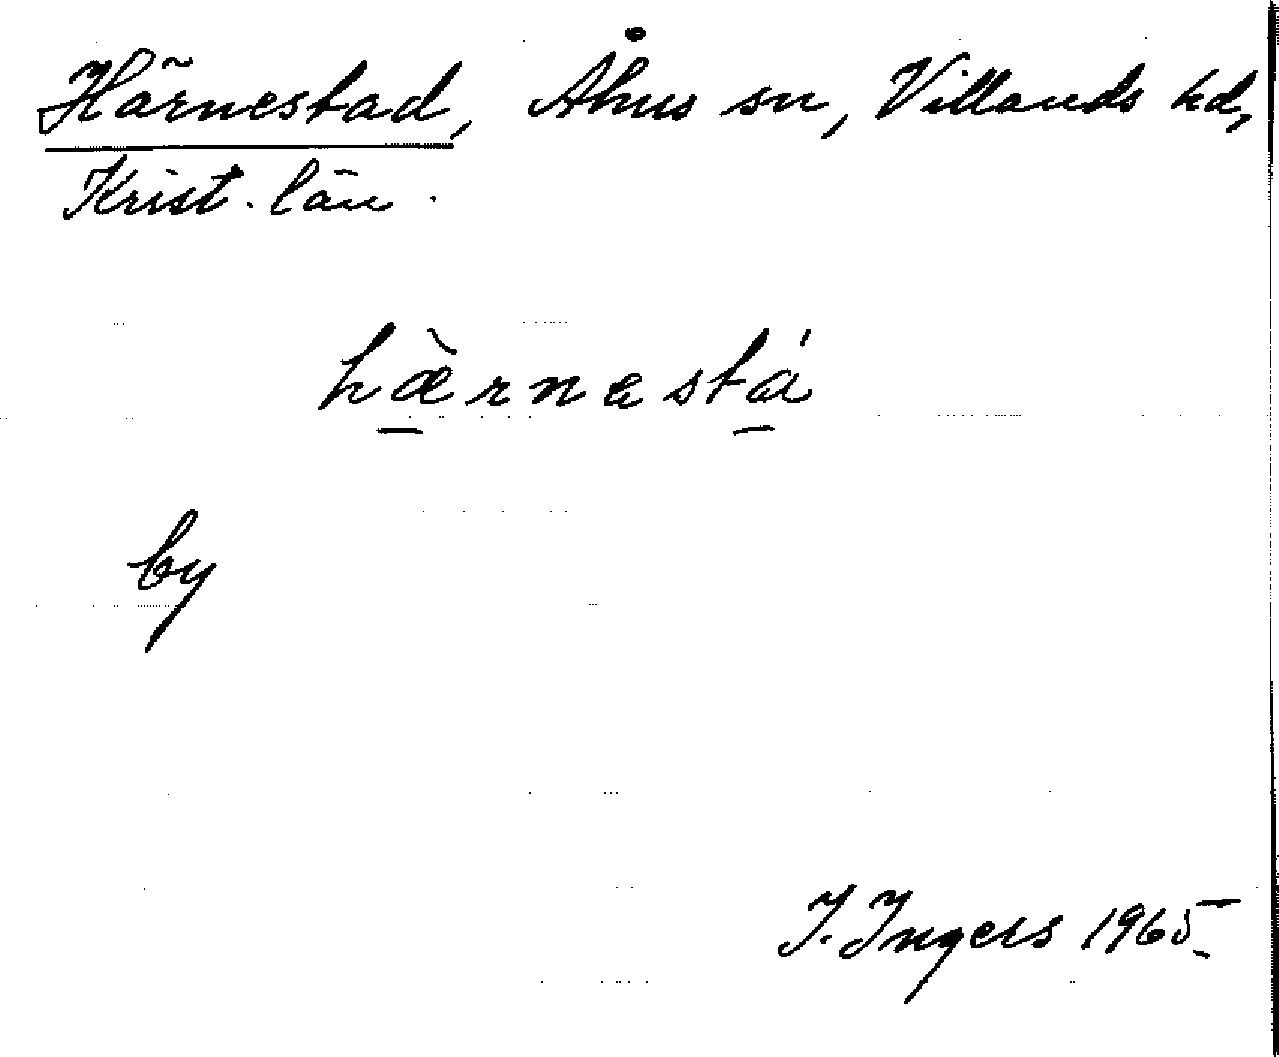 Härnestad, Åhus sn, Villands hd,
Krist. län.
hæ̀rnastá
by
I. Ingers 1965